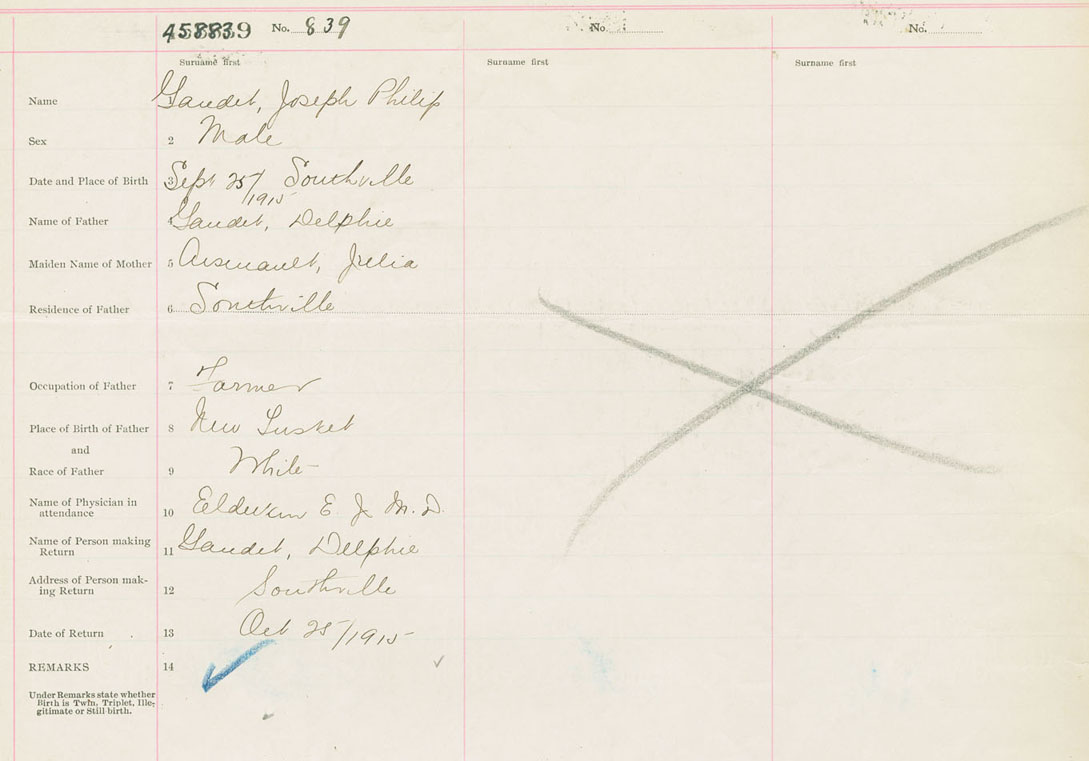 458839 No. 839 No. No.
Surname first Surname first Surname first
Name Gaudet, Joseph Philip
Sex 2 Male
Date and Place of Birth 3 Sept 25/1915 Southville
Name of Father 4 Gaudet, Delphie
Maiden Name of Mother 5 Arsenault, Julia
Residence of Father 6 Southville
Occupation of Father 7 Farmer
Place of Birth of Father 8 New Tusket
and
Race of Father 9 White
Name of Physician in
attendance 10 Elderkin E. J. M. D.
Name of Person making
Return 11 Gaudet, Delphie
Address of Person mak-
ing Return 12 Southville
Date of Return 13 Oct 25/1915
REMARKS 14
Under Remarks state whether
Birth is Twin, Triplet, Ille-
gitimate or Still birth.